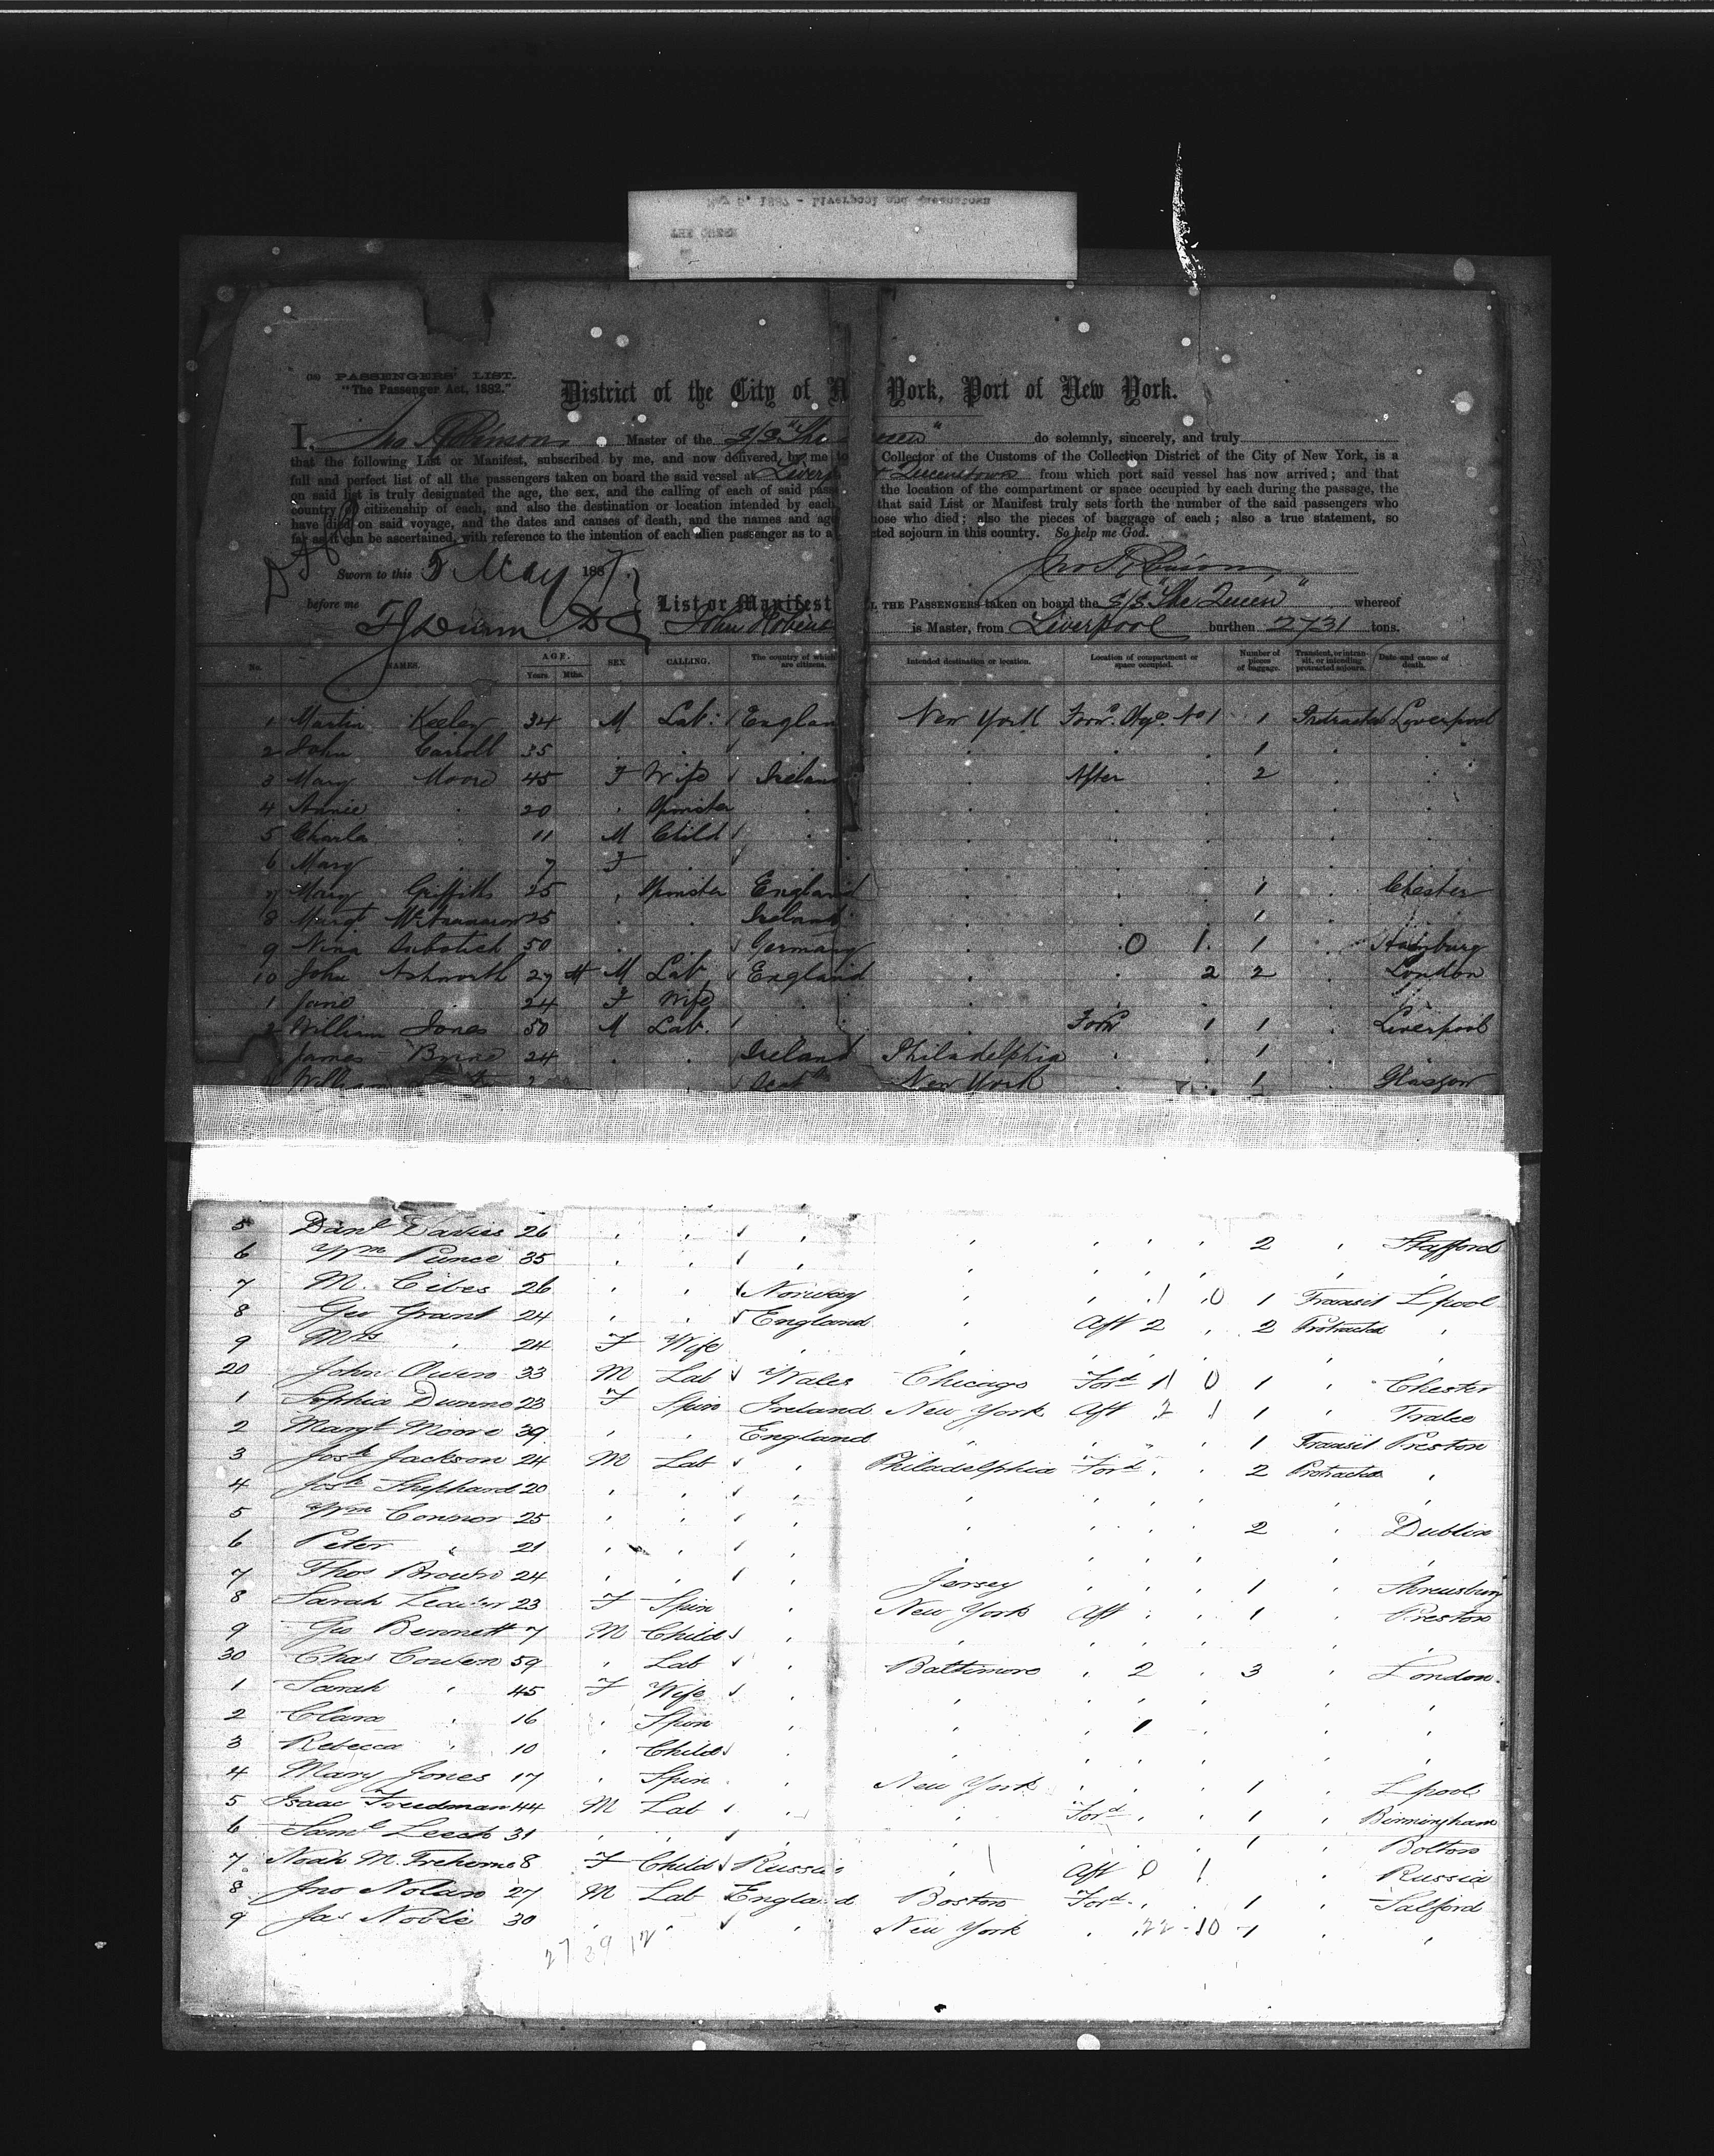 May 5, 1887 - Liverpool and Queenstown
THE QUEEN
PASSENGERS' LIST.
"The Passenger Act, 1882."
District of the City of N York, Port of New York.
I, Jno Robinson Master of the S/S "The ueen" do solemnly, sincerely, and truly
that the following List or Manifest, subscribed by me, and now delivered by me to Collector of the Customs of the Collection District of the City of New York, is a
full and perfect list of all the passengers taken on board the said vessel at Liverp Queenstown from which port said vessel has now arrived; and that
on said list is truly designated the age, the sex, and the calling of each of said pass the location of the compartment or space occupied by each during the passage, the
country of citizenship of each, and also the destination or location intended by each that said List or Manifest truly sets forth the number of the said passengers who
have died on said voyage, and the dates and causes of death, and the names and age hose who died; also the pieces of baggage of each; also a true statement, so
far as it can be ascertained, with reference to the intention of each alien passenger as to a cted sojourn in this country. So help me God.
Jno Robinson
Sworn to this 5 May 1887.
before me List or Manifest THE PASSENGERS taken on board the S/S "The Queen" whereof
John Robins is Master, from Liverpool burthen 2731 tons.
No. NAMES. AGE. Years. Mths. SEX CALLING. The country of which are citizens. Intended destination or location. Location of compartment or space occupied. Number of pieces of baggage. Transient, or in transit, or intending protracted sojourn. Date and cause of death.
1 Martin Keeley 34 M Lab: Englan New York Forw. No 1 1 Protracted Liverpool
2 John Carroll 35 . . . . 1 . .
3 Mary Moore 45 F Wife Irelan . After 2 . .
4 Annie . 20 . Spinster . . .
5 Charles . 11 M Child . . .
6 Mary . 7 F . . .
7 Mary Griffiths 25 . Spinster England . . 1 . Chester
8 Margt 25 . . Ireland . . 1 .
9 Nina 50 . . Germany . . 0 1 1 .
10 John Ashworth 27 M Lab England . . 2 2 . London
1 Jane 24 F Wife . . . .
2 William Jones 50 M Lab. . . Forw 1 1 . Liverpool
James Byrne 24 . . Ireland Philadelphia . . 1 .
William New York . 1 . Glasgow
5 Danl Davies 26 . . . . . . 2 . Stafford
6 Wm 35 . . . . . .
7 M. 26 . . Norway . . 1 0 1 Transit Lpool
8 Geo Grant 24 . . England . Aft 2 . 2 Protracted "
9 Mrs " 24 F Wife . . . .
20 John Owen 33 M Lab Wales Chicago Ford 1 0 1 " Chester
1 Sophia Dunne 23 F Spin Ireland New York Aft 2 1 1 " Tralee
2 Margt Moore 39 " " England " " " 1 Transit Preston
3 Josh Jackson 24 M Lab " Philadelphia Ford " " 2 Protracted "
4 Josh Shephard 20 " " " " " "
5 Wm Connor 25 " " " " " 2 " Dublin
6 Peter " 21 " " " " " "
7 Thos Brown 24 " " " Jersey " " 1 " Shrewsbury
8 Sarah 23 F Spin " New York Aft " 1 " Preston
9 Geo Bennett 7 M Child " " " " "
30 Chas Cowen 59 " Lab " Baltimore " 2 " 3 " London
1 Sarah " 45 F Wife " " " " "
2 Clara " 16 " Spin " " " 1 " "
3 Rebecca " 10 " Child " " " " "
4 Mary Jones 17 " Spin " New York " " 1 " Lpool
5 Isaac Freedman 44 M Lab " " Ford " 1 " Birmingham
6 Saml Leech 31 " " " " " 1 " Bolton
7 Noah M. 8 F Child Russia " Aft 0 1 " Russia
8 Jno Nolan 27 M Lab England Boston Ford " 1 " Salford
9 Jas Noble 30 " " " New York " 22-10 1 " "
27 39 12